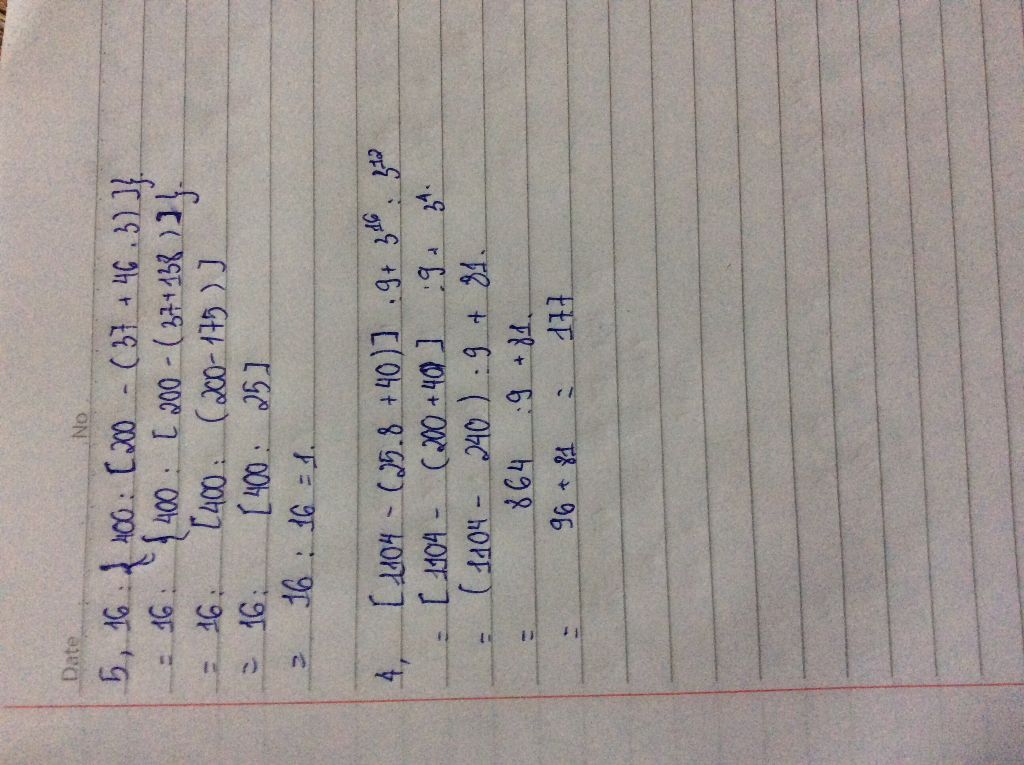 Date No
5, 16 : { 400 : [ 200 - ( 37 + 46 . 3 ) ] }.
= 16 : { 400 : [ 200 - ( 37 + 138 ) ] }.
= 16 : [ 400 : ( 200 - 175 ) ]
= 16 : [ 400 : 25 ]
= 16 : 16 = 1.
4, [ 1104 - ( 25 . 8 + 40 ) ] : 9 + 3¹⁶ : 3¹²
= [ 1104 - ( 200 + 40 ) ] : 9 + 3⁴.
= ( 1104 - 240 ) : 9 + 81.
= 864 : 9 + 81.
= 96 + 81 = 177